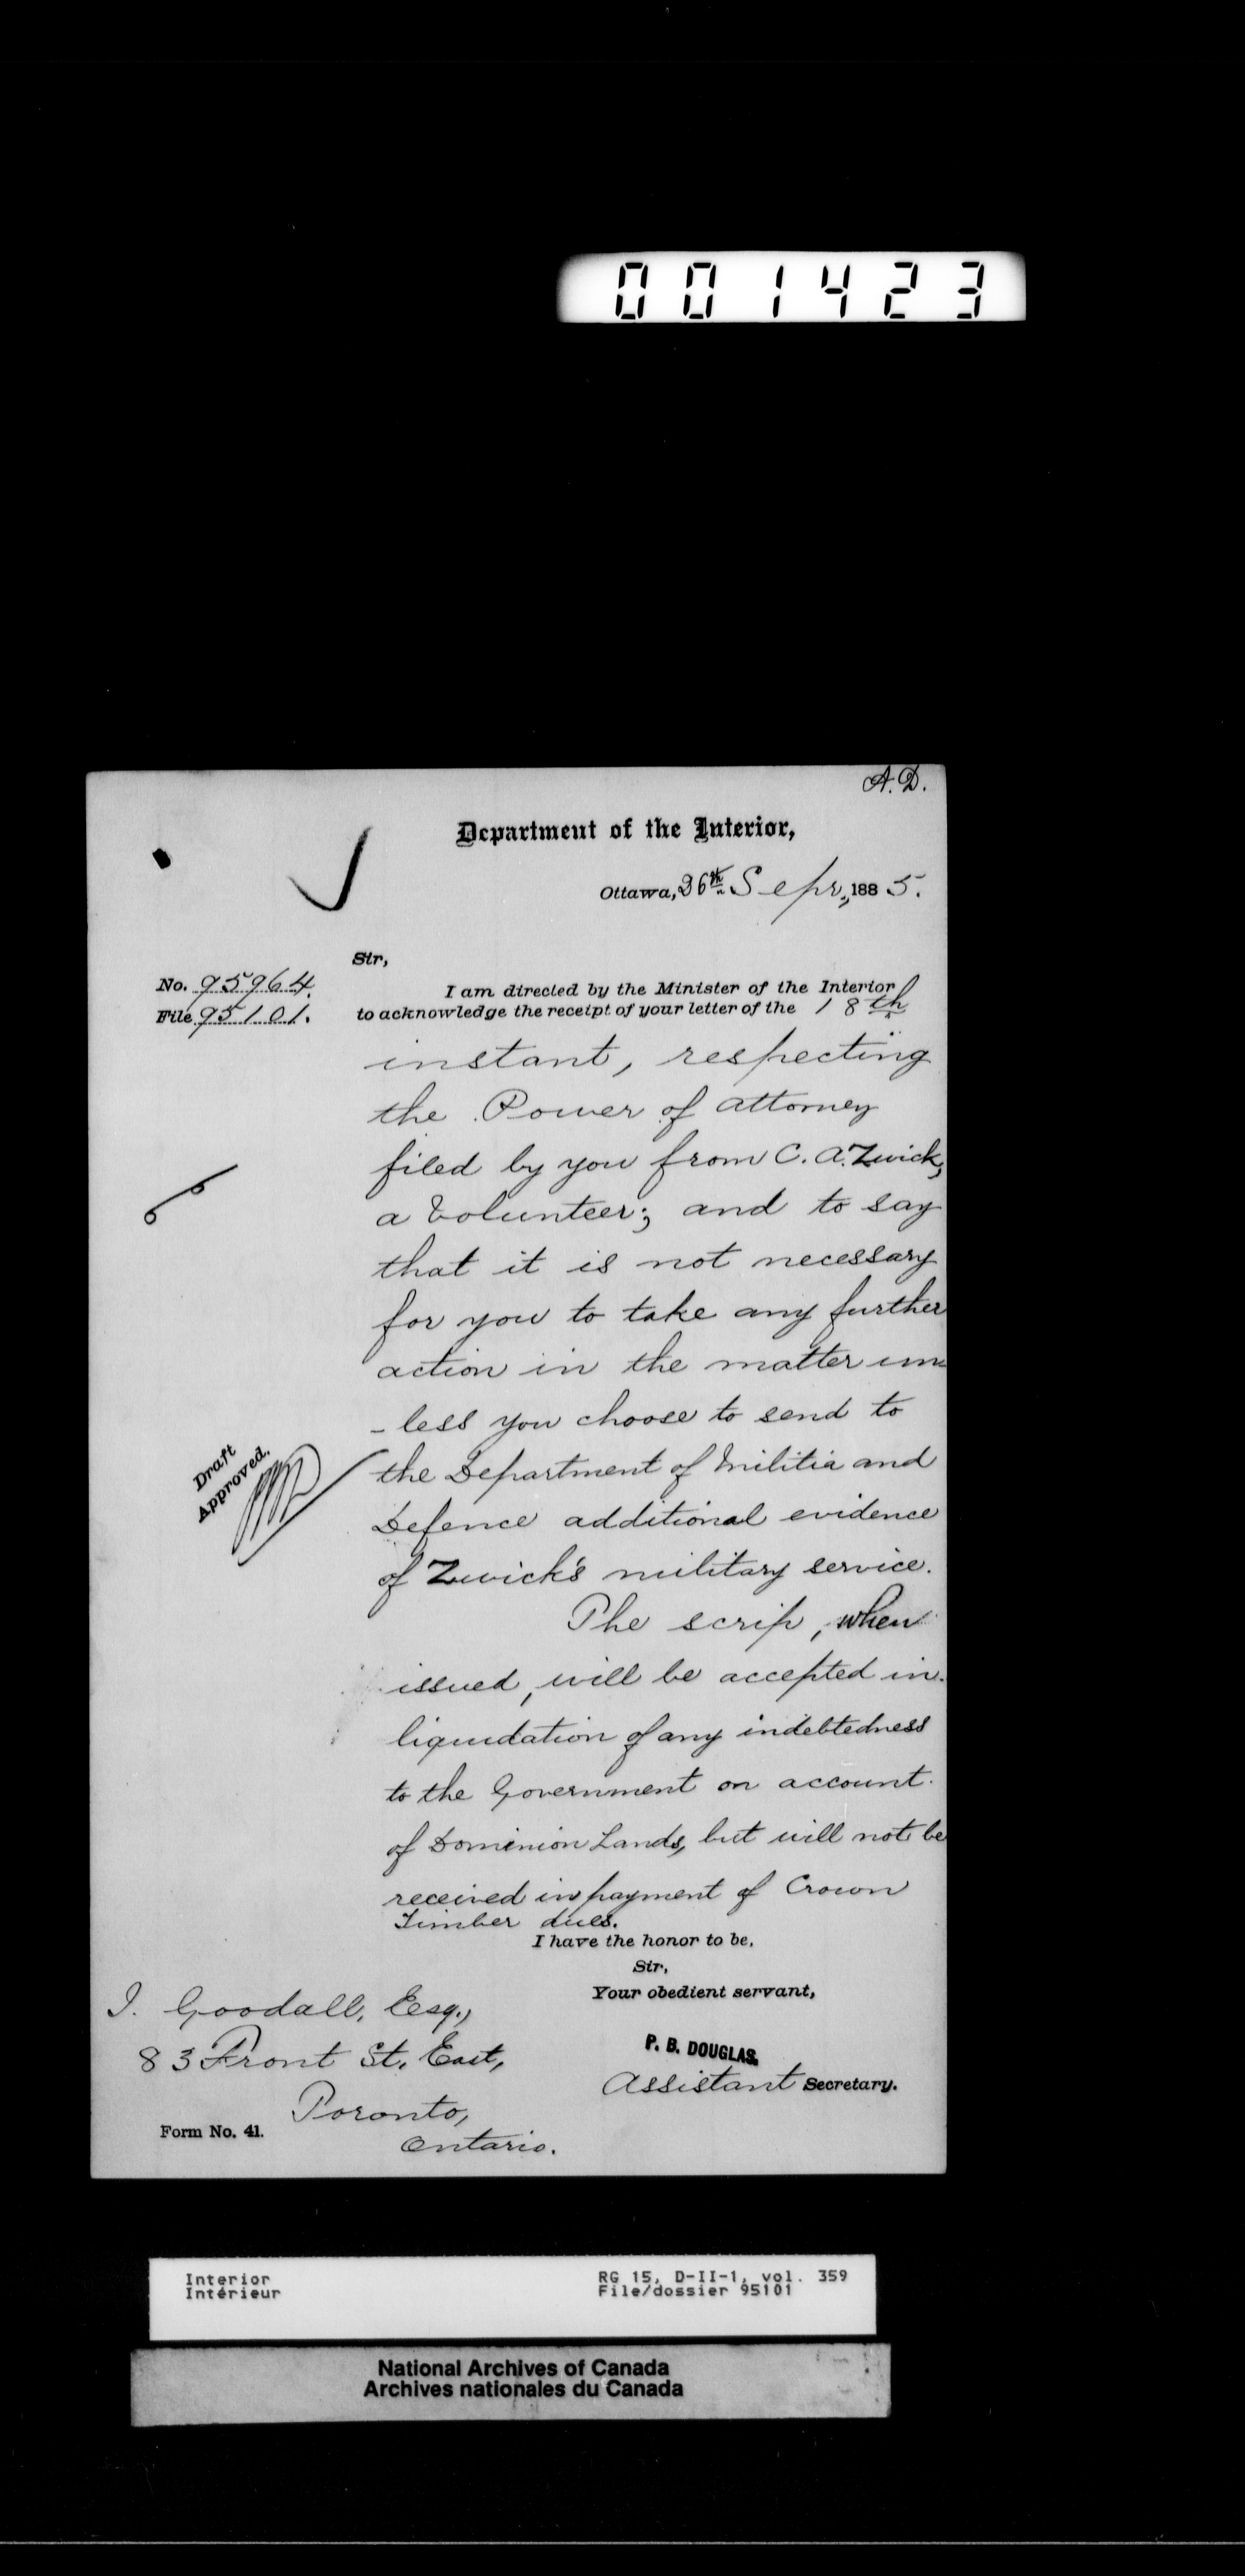 001423
A. D.
Department of the Interior,
Ottawa, 26th Sepr., 1885.
Sir,
No. 95964.
File 95101.
I am directed by the Minister of the Interior
to acknowledge the receipt of your letter of the 18th
instant, respecting
the Power of attorney
filed by you from C. A. Zwick,
a Volunteer; and to say
that it is not necessary
for you to take any further
action in the matter un
-less you choose to send to
the Department of Militia and
Defence additional evidence
of Zwick's military service.
The scrip, when
issued, will be accepted in
liquidation of any indebtedness
to the Government on account
of Dominion Lands, but will not be
received in payment of Crown
Timber dues.
Draft
Approved.
I have the honor to be,
Sir,
Your obedient servant,
P. B. DOUGLAS,
Assistant Secretary.
J. Goodall, Esq.,
83 Front St. East,
Toronto,
Ontario.
Form No. 41.
Interior
Intérieur
RG 15, D-II-1, vol. 359
File/dossier 95101
National Archives of Canada
Archives nationales du Canada